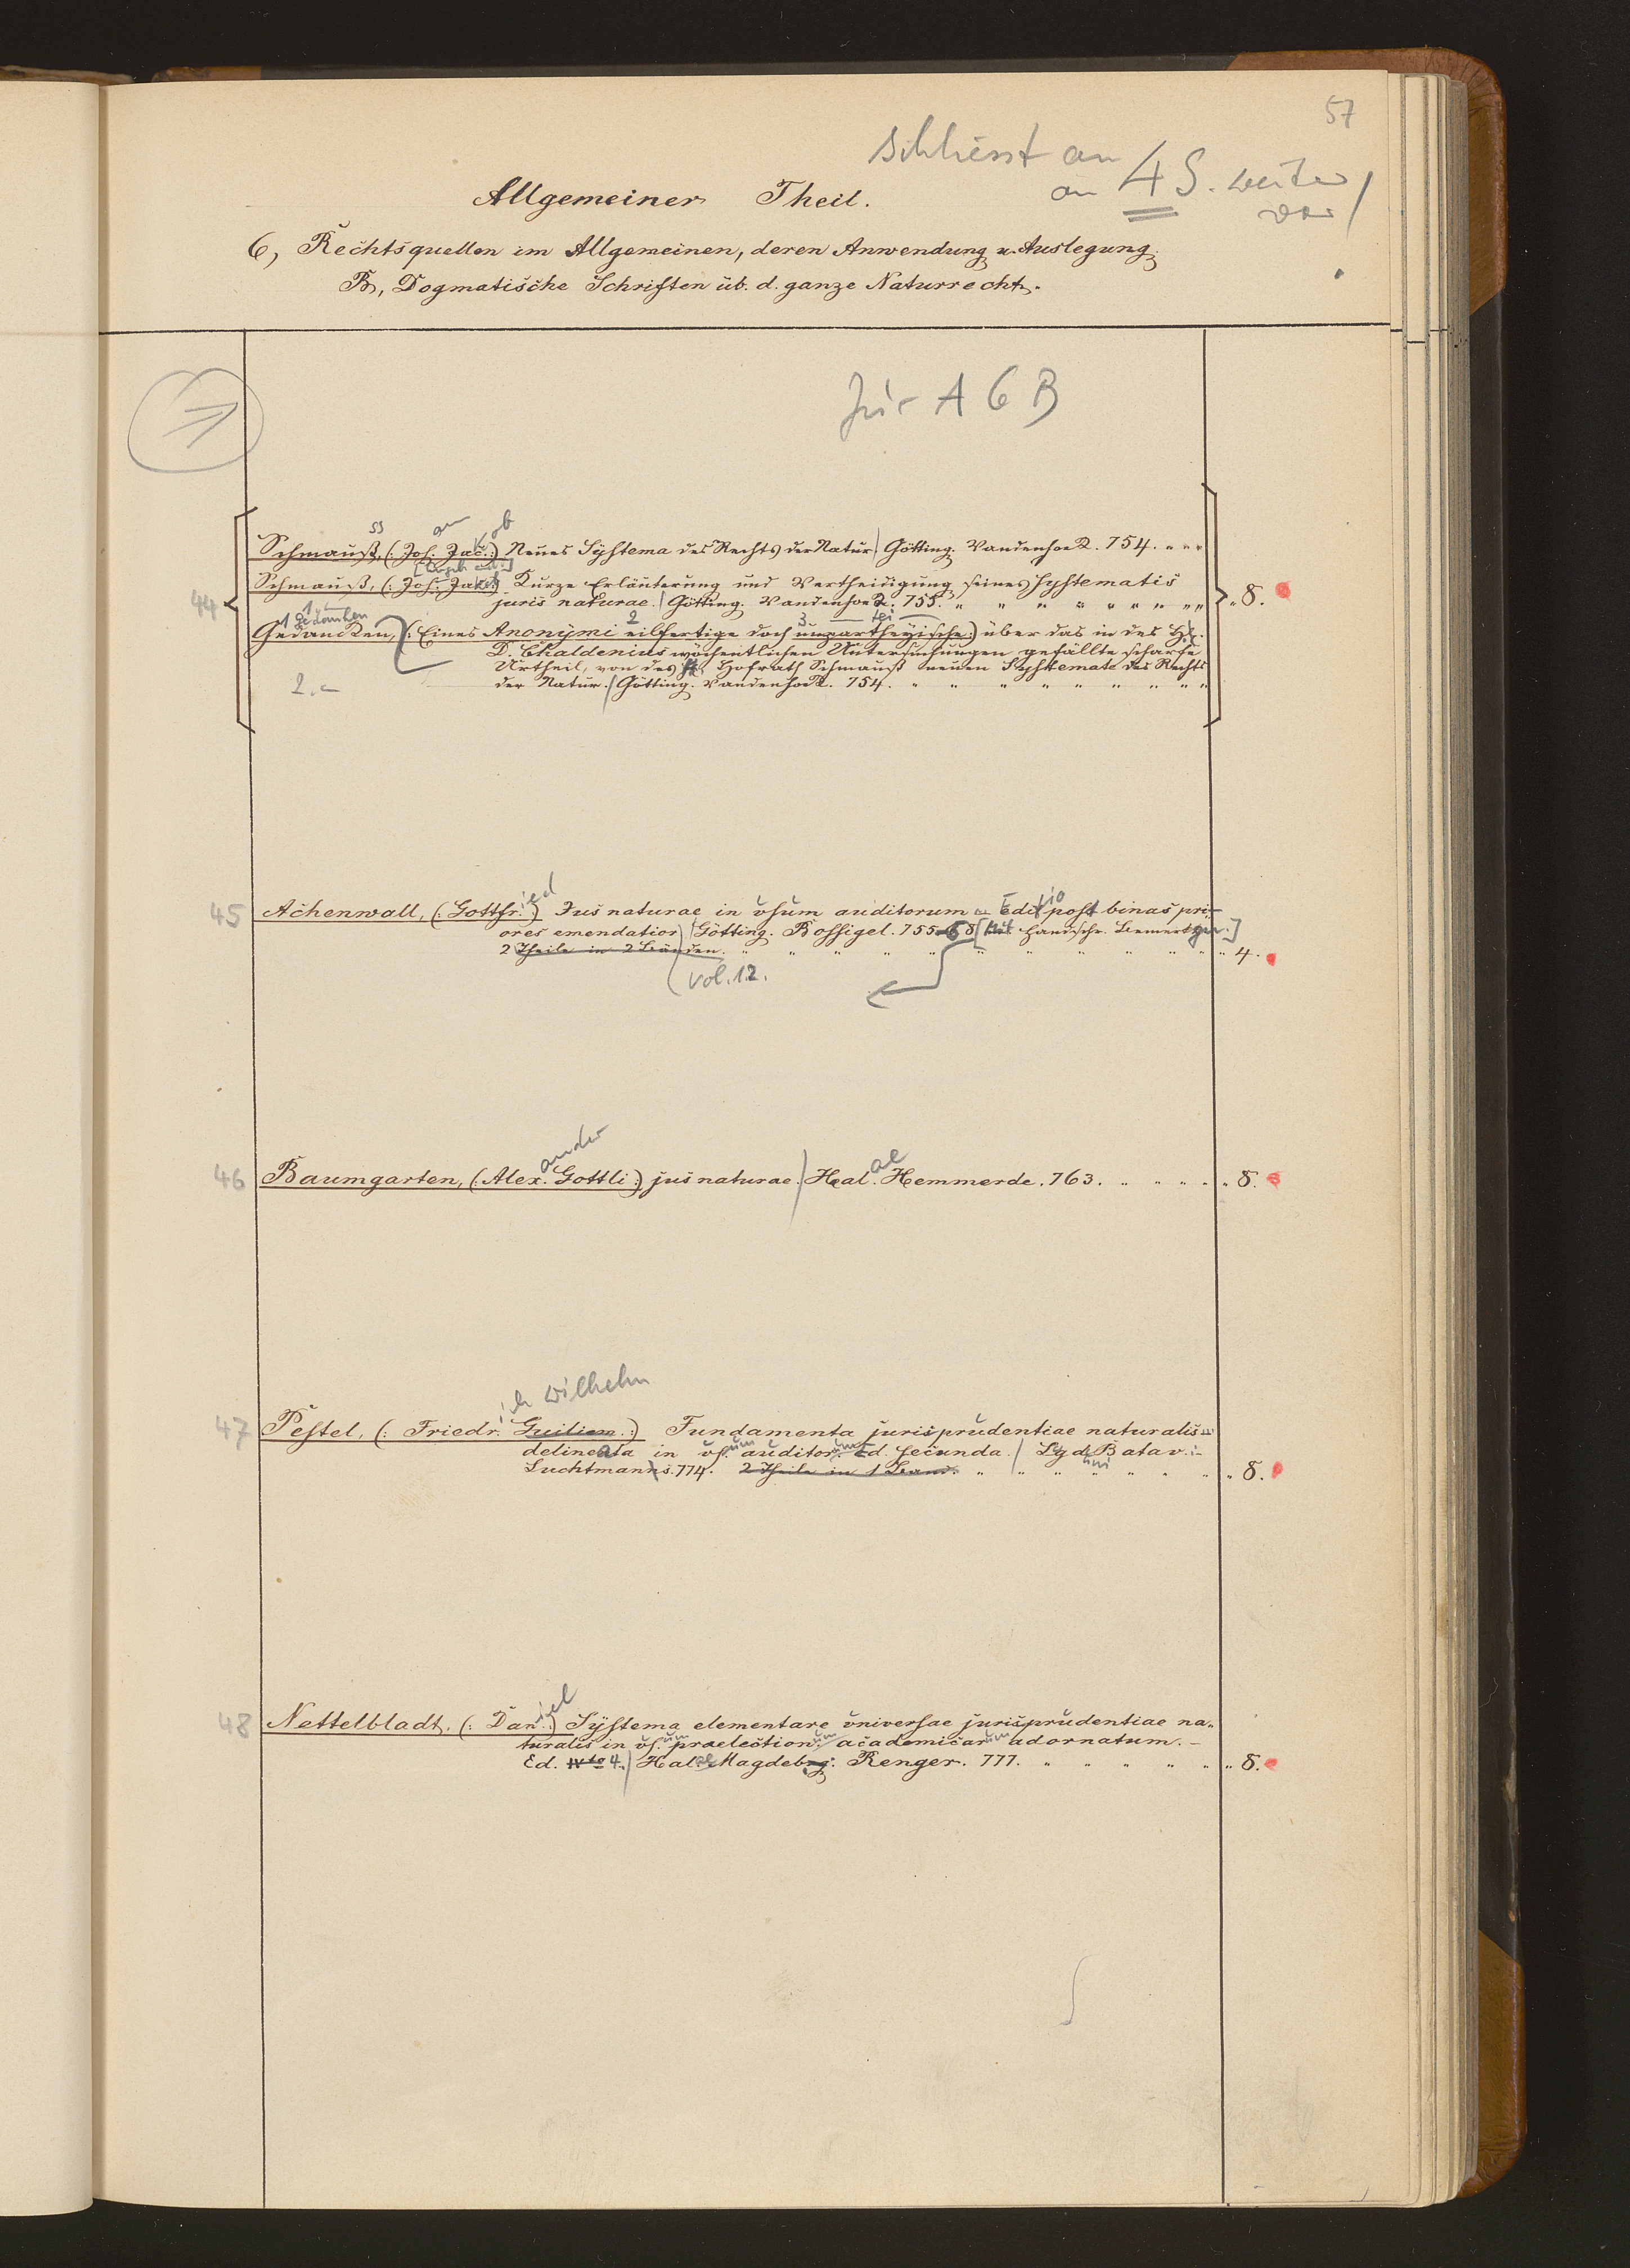 57
schliesst an
an 4 S. weiter
vor /
Allgemeiner Theil.
6, Rechtsquellen im Allgemeinen, deren Anwendung u. Auslegung.
B, Dogmatische Schriften üb. d. ganze Naturrecht.
für A 6 B
ss an k ob
Schmauß, (: Joh. Jac. :) Neues Systema des Rechts der Natur / Götting. Vandenhoeck. 754. " " "
Schmauß, (: Joh. Jakob :) Kurze Erläuterung und Vertheidigung seines Systematis
44 juris naturae. / Götting. Vandenhoeck. 755. " " " " " " " " " " 8.
1 Gedanken 2 3 tei
Gedancken, (: Eines Anonymi eilfertige doch unpartheyische :) über das in des H.
D. Chladenius wöchentlichen Untersuchungen gefällte scharfe
Urtheil, von des H. Hofrath Schmauß neuen Systemate des Rechts
2.- der Natur. / Götting. Vandenhoeck. 754. " " " " " " " "
ied tio
45 Achenwall, (: Gottfr. :) Jus naturae in usum auditorum Edit post binas pri-
ores emendatior / Götting. Bossigel. 755-68 [Mit handschr. Bemerkgn.]
2 Theile in 2 Bänden. " " " " " " " " " " 4.
vol. 1.2.
ander ae
46 Baumgarten, (: Alex. Gottli :) jus naturae. / Hal. Hemmerde. 763. " " " " " 8.
ich Wilhelm
47 Pestel, (: Friedr. Guiliem. :) Fundamenta jurisprudentiae naturalis
delineata in us. auditor. Ed. secunda. / Lugd. Batav. -
Luchtmanns. 774. 2 Theile in 1 Band. " " " " " " " 8.
iel
48 Nettelbladt, (: Dan. :) Systema elementare universae jurisprudentiae na-
turalis in us. praelection. academicar. adornatum. -
Ed. IVta 4. / Hal. Magdebrg. Renger. 777. " " " " " " 8.